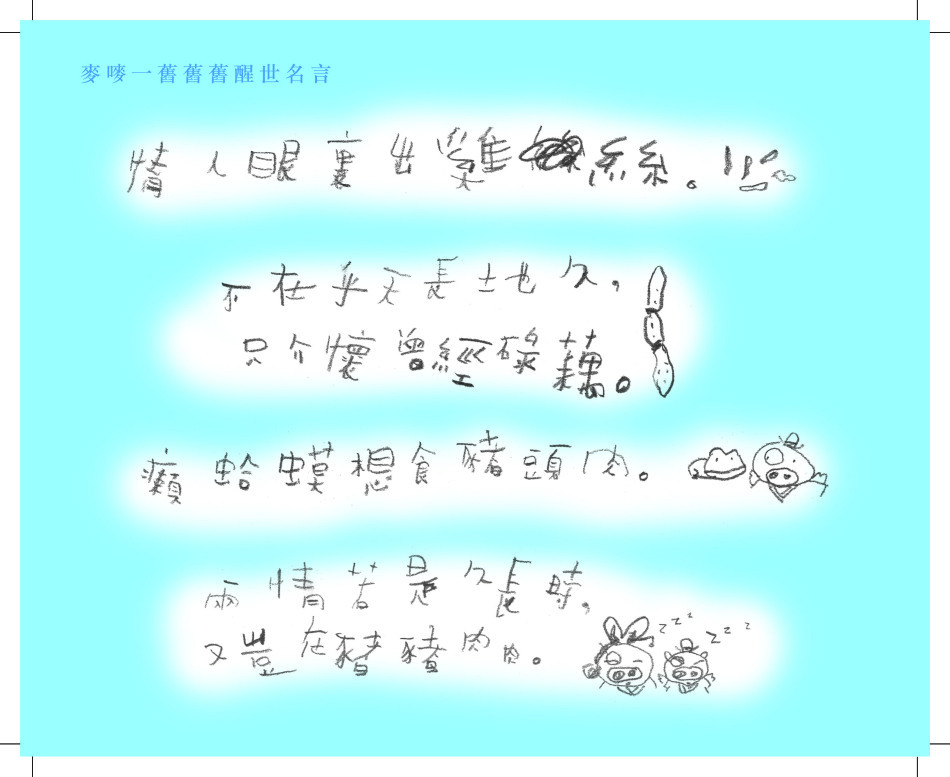 麥嘜一舊舊舊醒世名言
情人眼裏出雞絲。
不在乎天長地久,
只介懷曾經碌藕。
癩蛤蟆想食豬頭肉。
兩情若是久長時,
又豈在豬豬肉肉。
zzz
zzz